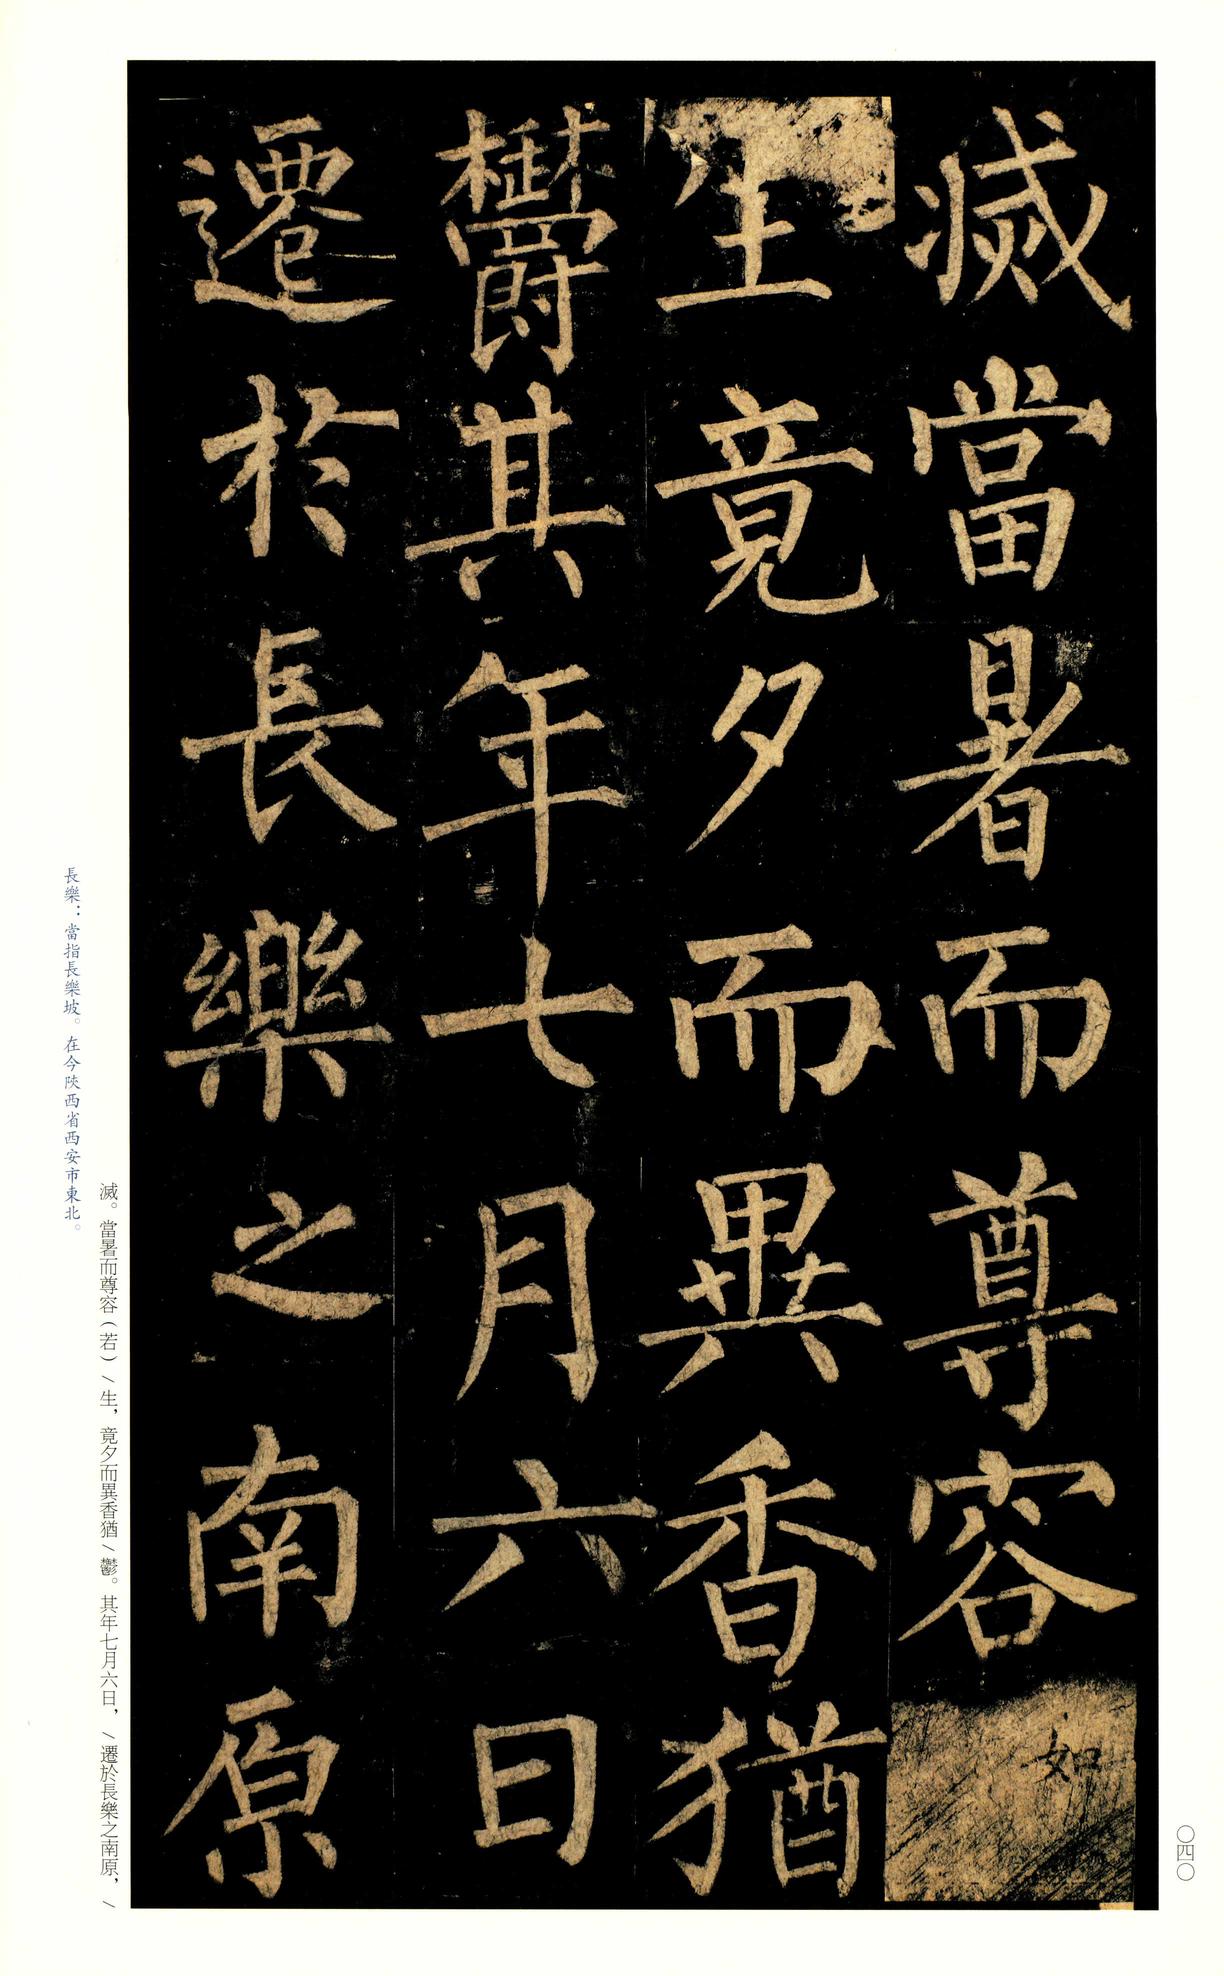 滅當暑而尊容
如
生竟夕而異香猶
欝其年七月六日
遷於長樂之南原
長樂：當指長樂坡。在今陝西省西安市東北。
滅。當暑而尊容（若）／生，竟夕而異香猶／鬱。其年七月六日，／遷於長樂之南原，／
〇四〇